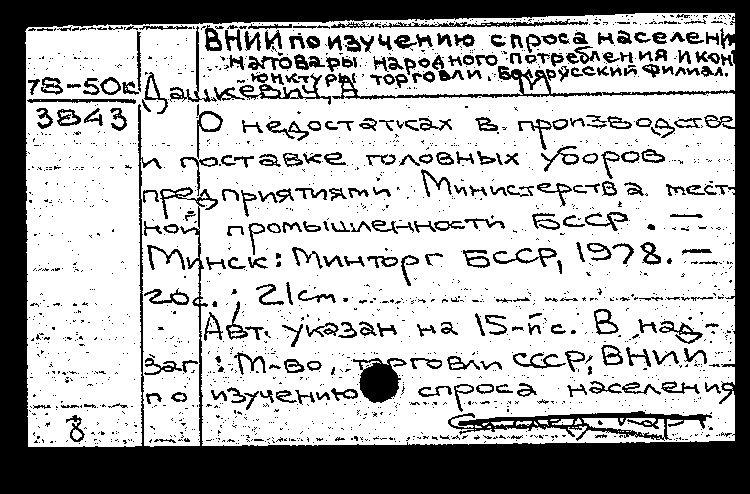 ВНИИ по изучению спроса населени
на товары народного потребления и кон
юнктуры торговли. Белорусский филиал.
78-50к Дашкевич, А
3843 О недостатках в производстве
и поставке головных уборов
предприятиями Министерства мест-
ной промышленности БССР. —
Минск: Минторг БССР, 1978. —
20с.; 21см.
Авт. указан на 15-й с. В над-
заг: М-во, торговли СССР; ВНИИ
по изучению спроса населения
8 След. карт.